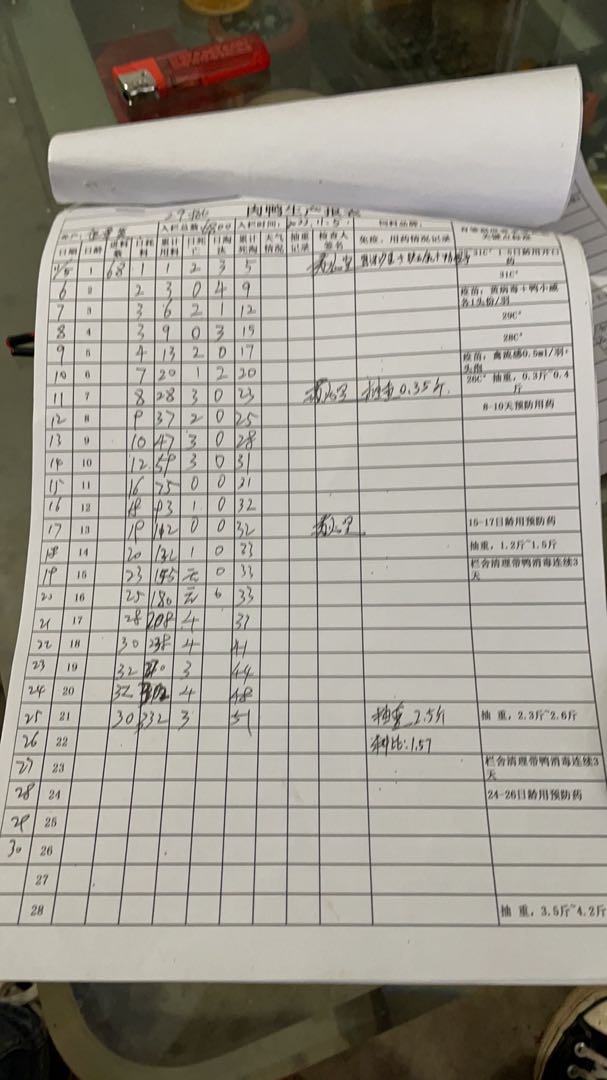 肉鸭生产报表
入栏总数6800 入栏时间 饲料品牌:
日期 日龄 进料数 日耗料 累计用料 日死亡 日淘汰 累计死淘 天气情况 抽重记录 检查人签名 免疫、用药情况记录 关键点标准
11/5 1 68 1 1 2 3 5 31C° 1-5日龄用开口药
6 2 2 3 0 4 9 31C°
7 3 3 6 2 1 12 疫苗:黄病毒+鸭小威各1头份/羽
8 4 3 9 0 3 15 29C°
28C°
9 5 4 13 2 0 17 疫苗:禽流感0.5ml/羽
10 6 7 20 1 2 20
11 7 8 28 3 0 23 抽重0.35斤 26C° 抽重,0.3斤~0.4斤
12 8 9 37 2 0 25 8-10天预防用药
13 9 10 47 3 0 28
14 10 12 59 3 0 31
15 11 16 75 0 0 31
16 12 18 93 1 0 32
17 13 19 112 0 0 32 15-17日龄用预防药
18 14 20 132 1 0 33 抽重,1.2斤~1.5斤
19 15 23 155 无 0 33 栏舍清理带鸭消毒连续3天
20 16 25 180 无 0 33
21 17 28 208 4 37
22 18 30 238 4 41
23 19 32 3 44
24 20 32 302 4 48
25 21 30 332 3 51 抽重2.5斤 抽 重,2.3斤~2.6斤
26 22 料比:1.57
27 23 栏舍清理带鸭消毒连续3天
28 24 24-26日龄用预防药
29 25
30 26
27
28 抽 重,3.5斤~4.2斤